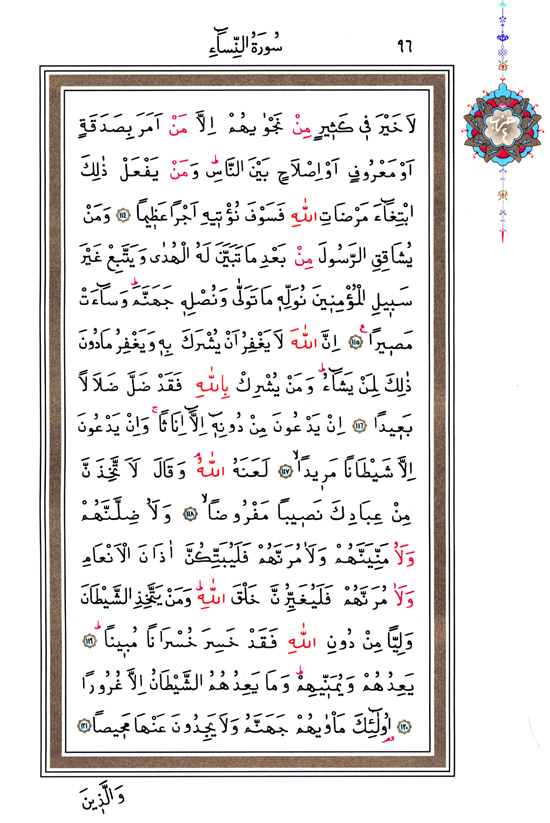 ٩٦ سُورَةُ النِّسَاءِ
حزب
لَا خَيْرَ فٖى كَثٖيرٍ مِنْ نَجْوٰيهُمْ اِلَّا مَنْ اَمَرَ بِصَدَقَةٍ
اَوْ مَعْرُوفٍ اَوْ اِصْلَاحٍ بَيْنَ النَّاسِؕ وَمَنْ يَفْعَلْ ذٰلِكَ
ابْتِغَٓاءَ مَرْضَاتِ اللّٰهِ فَسَوْفَ نُؤْتٖيهِ اَجْرًا عَظٖيمًا ﴿١١٤﴾ وَمَنْ
يُشَاقِقِ الرَّسُولَ مِنْ بَعْدِ مَا تَبَيَّنَ لَهُ الْهُدٰى وَيَتَّبِعْ غَيْرَ
سَبٖيلِ الْمُؤْمِنٖينَ نُوَلِّهٖ مَا تَوَلّٰى وَنُصْلِهٖ جَهَنَّمَؕ وَسَٓاءَتْ
مَصٖيرًاࣖ ﴿١١٥﴾ اِنَّ اللّٰهَ لَا يَغْفِرُ اَنْ يُشْرَكَ بِهٖ وَيَغْفِرُ مَا دُونَ
ذٰلِكَ لِمَنْ يَشَٓاءُؕ وَمَنْ يُشْرِكْ بِاللّٰهِ فَقَدْ ضَلَّ ضَلَالًا
بَعٖيدًا ﴿١١٦﴾ اِنْ يَدْعُونَ مِنْ دُونِهٖٓ اِلَّٓا اِنَاثًاۚ وَاِنْ يَدْعُونَ
اِلَّا شَيْطَانًا مَرٖيدًاۙ ﴿١١٧﴾ لَعَنَهُ اللّٰهُۘ وَقَالَ لَاَتَّخِذَنَّ
مِنْ عِبَادِكَ نَصٖيبًا مَفْرُوضًاۙ ﴿١١٨﴾ وَلَاُضِلَّنَّهُمْ
وَلَاُمَنِّيَنَّهُمْ وَلَاٰمُرَنَّهُمْ فَلَيُبَتِّكُنَّ اٰذَانَ الْاَنْعَامِ
وَلَاٰمُرَنَّهُمْ فَلَيُغَيِّرُنَّ خَلْقَ اللّٰهِؕ وَمَنْ يَتَّخِذِ الشَّيْطَانَ
وَلِيًّا مِنْ دُونِ اللّٰهِ فَقَدْ خَسِرَ خُسْرَانًا مُبٖينًاؕ ﴿١١٩﴾
يَعِدُهُمْ وَيُمَنّٖيهِمْؕ وَمَا يَعِدُهُمُ الشَّيْطَانُ اِلَّا غُرُورًا
﴿١٢٠﴾ اُو۬لٰٓئِكَ مَاْوٰيهُمْ جَهَنَّمُ وَلَا يَجِدُونَ عَنْهَا مَحٖيصًا ﴿١٢١﴾
وَالَّذٖينَ